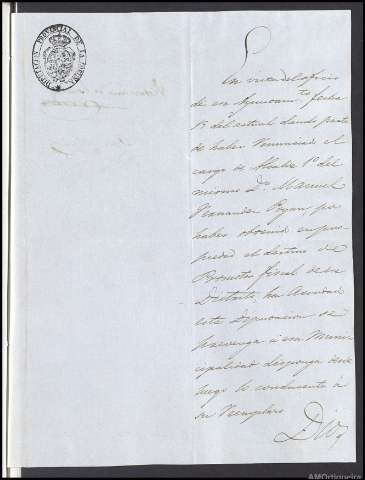 DIPUTACION PROVINCIAL DE LA CORUÑA
En vista del oficio
de ese Ayuntamto fecha
15 del actual dando parte
de haber renunciado el
cargo de Alcalde 1º del
mismo Dn Manuel
Fernandez por
haber obtenido en pro-
piedad el destino de
Promotor fiscal de ese
Distrito, ha acordado
esta Diputacion se
prevenga á esa Muni-
cipalidad disponga desde
luego lo conducente á
su reemplazo.
Dios
AMOrtigueira